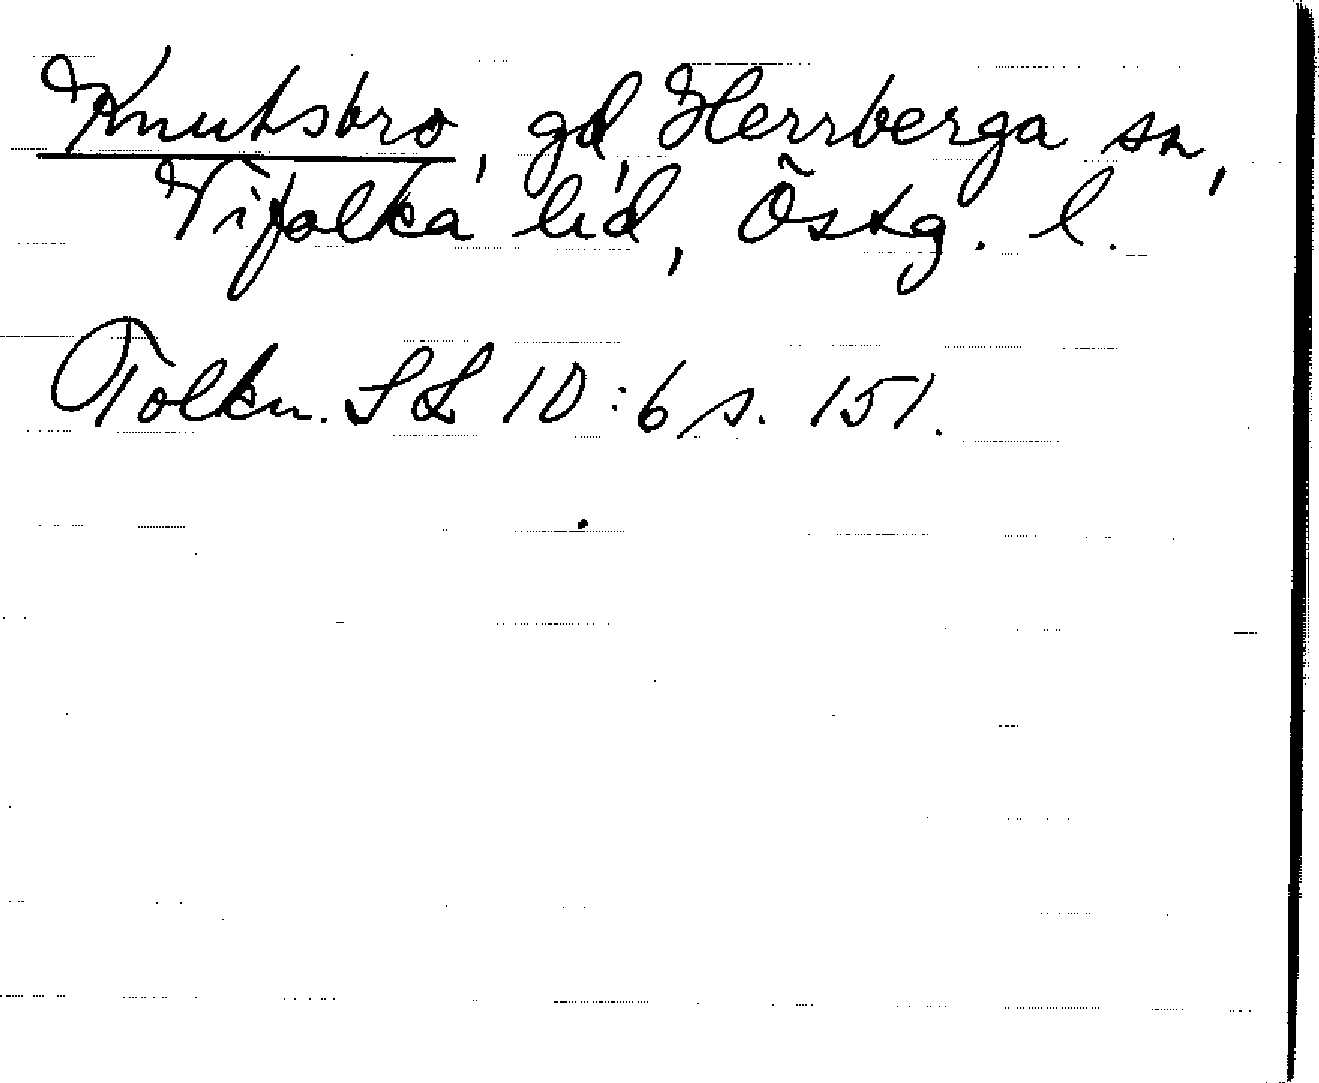 Knutsbro, gd, Herrberga sn,
Vifolka hd, Östg. l.
Tolkn. SL 10:6 s. 151.